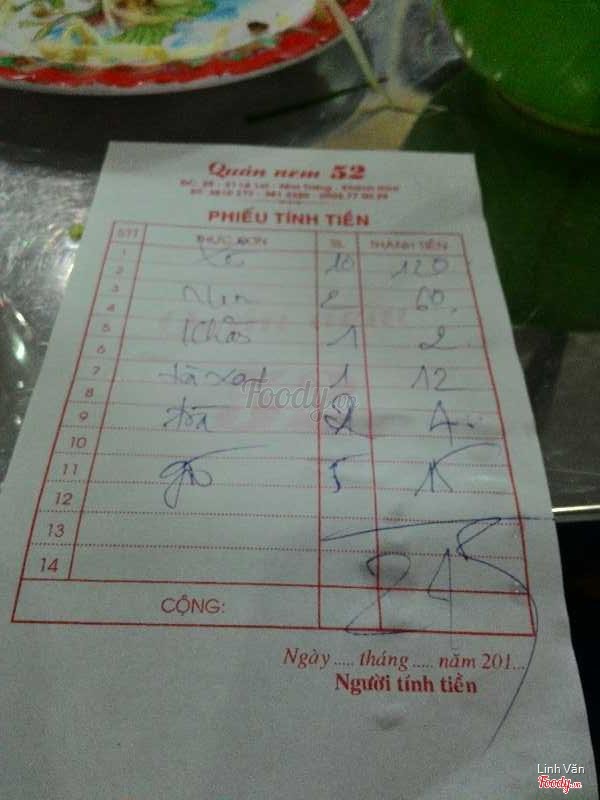 Quán nem 52
PHIẾU TÍNH TIỀN
STT THỰC ĐƠN SL THÀNH TIỀN
1
2 10 120
3
4 Nem 2 60
5
6 Khăn 1 2
7
8 trà xanh 1 12
9 trà 4
10
11 5 15
12
13
14
CỘNG: 245
Ngày ..... tháng ..... năm 201...
Người tính tiền
Foody.vn
Linh Văn
Foody.vn